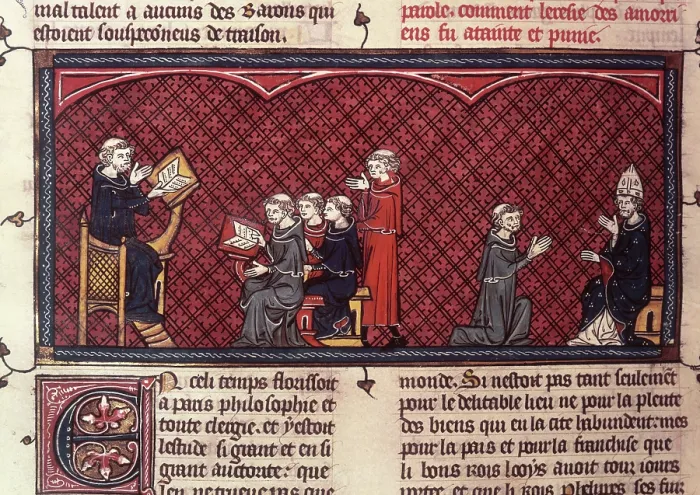 mal talent a aucuns des barons qui
estoient souspeconeus de traison.
parole. comment leresie des amorri
ens fu atainte et punie.
En celi temps florissoit
a paris philosophie et
toute clergie. et y estoit
lestude si grant et en si
grant auctorite: que
len ne treuve mie que
monde. Si nestoit pas tant seulement
pour le delitable lieu ne pour la plente
des biens qui en la cite habundent: mes
pour la pais et pour la franchise que
li bons rois looys avoit tour jours
portee. et que li rois Phelipes ses fiuz